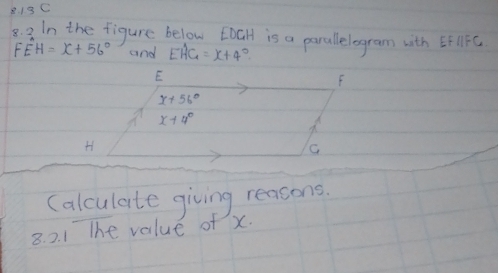 8.13 C
8.2 In the figure below EDGH is a parallelogram with EF||FG.
FÊH = x+56° and EĤG = x+4°.
E
F
x+56°
x+4°
H
G
Calculate giving reasons.
8.2.1 The value of x.